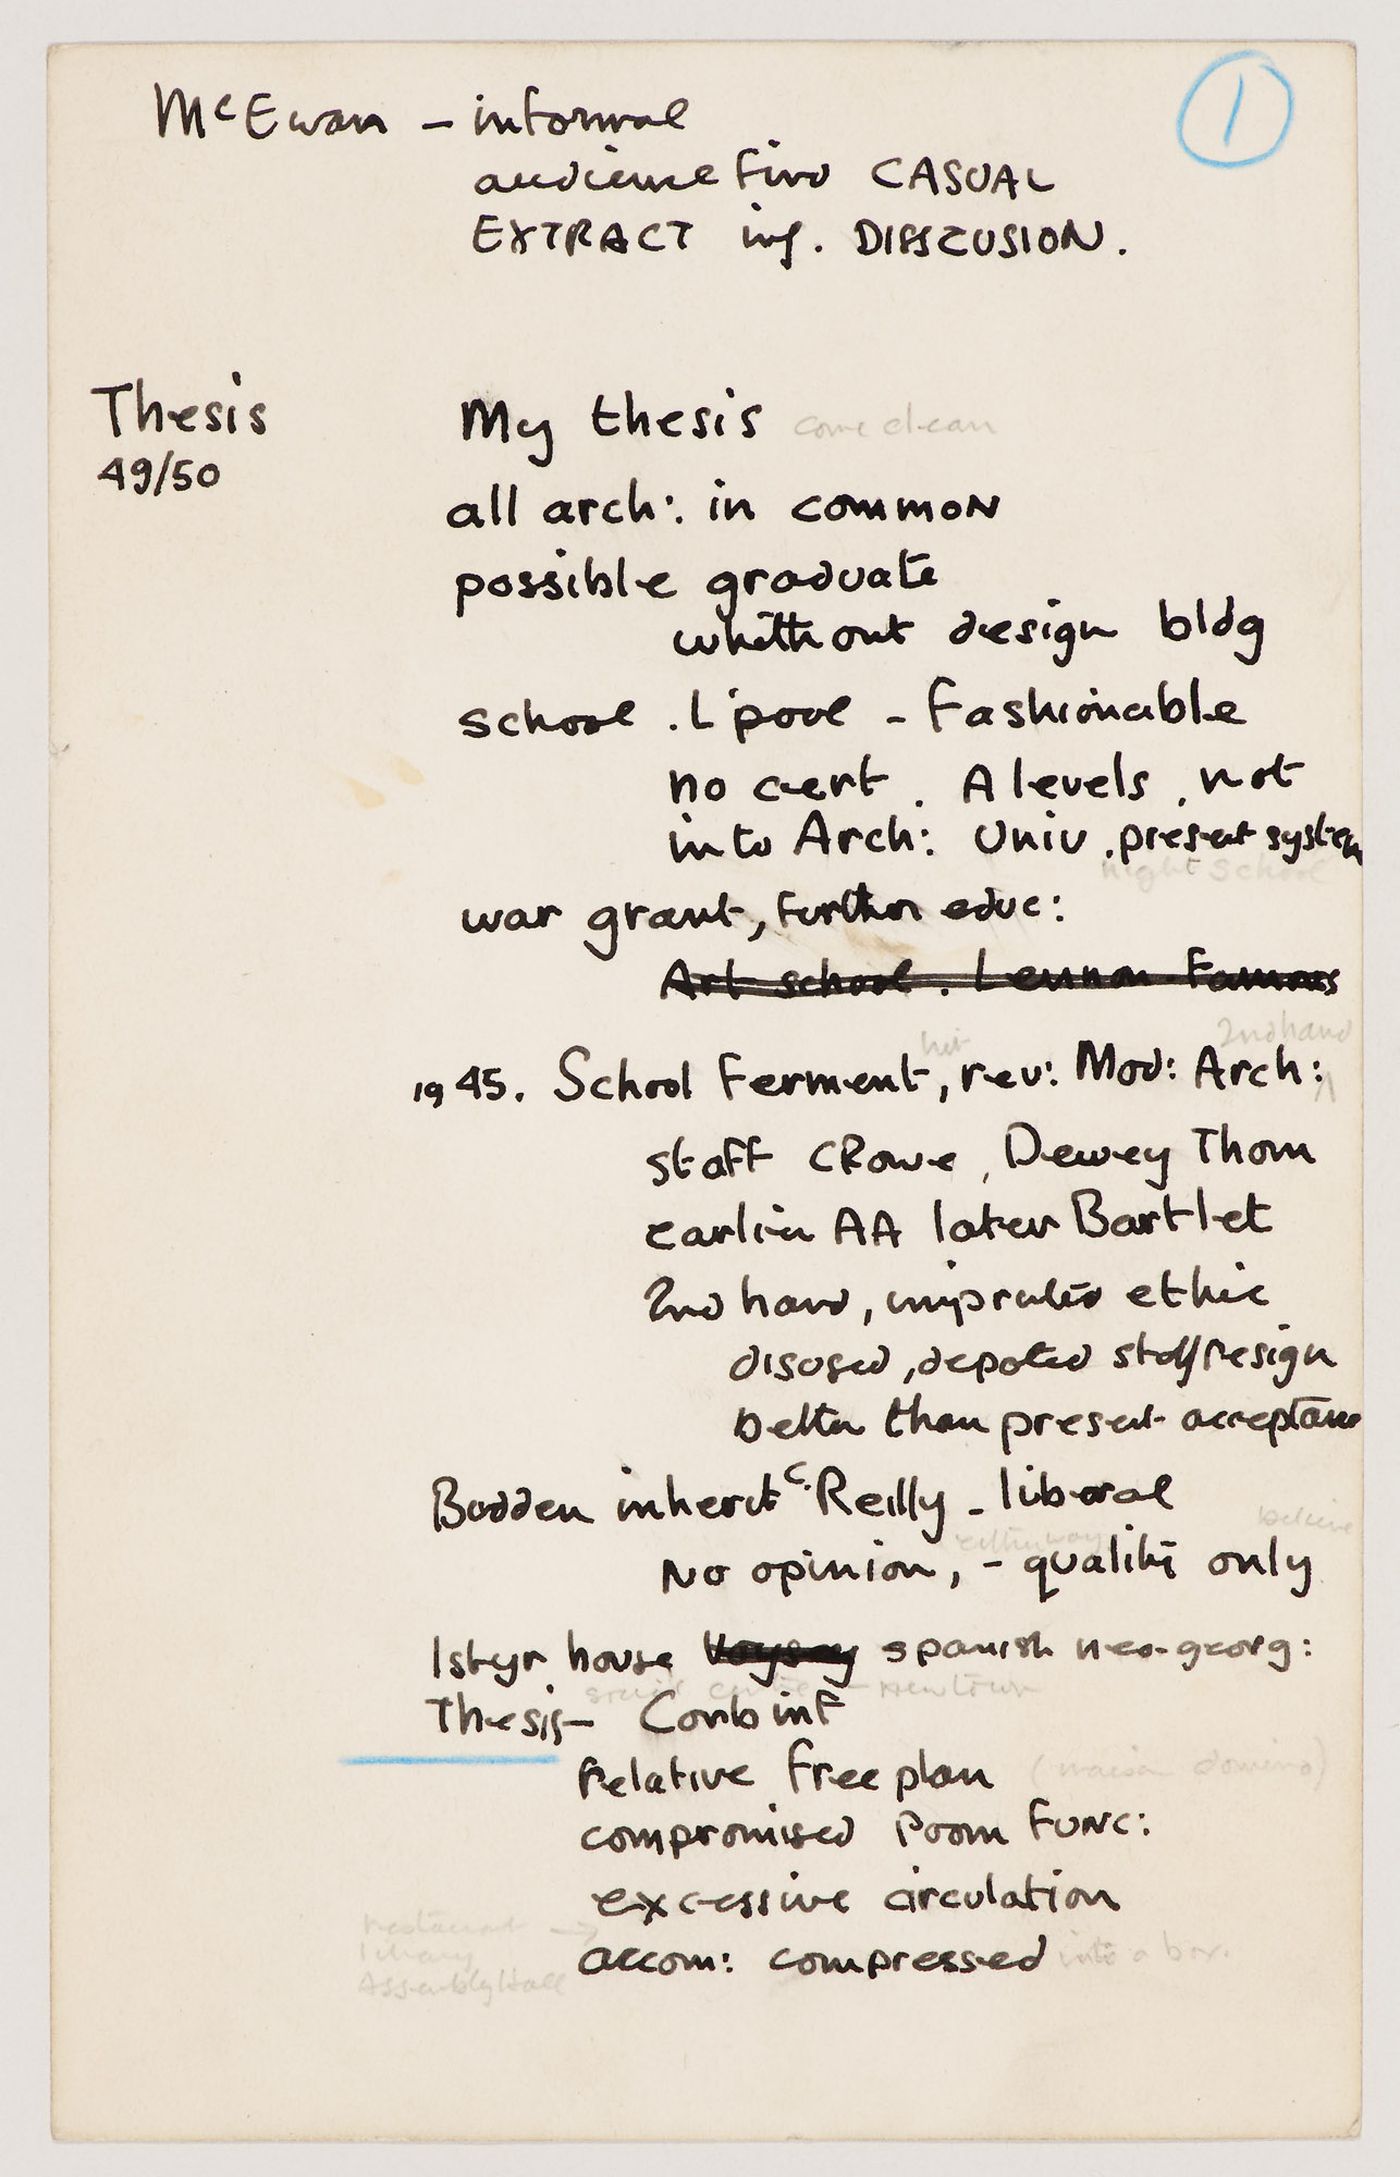 1
McEwan – informal
audience find CASUAL
EXTRACT inf. DISSCUSION.
Thesis
49/50
My thesis come clean
all arch: in common
possible graduate
whithout design bldg
school . L'pool - Fashionable
no cert . A levels . not
into Arch: Univ . present system
night school
war grant, further educ:
Art school . Lennon Famous
hit 2nd hand
1945. School Ferment, rev: Mod: Arch:
staff CRowe, Dewey Thom
earlier AA later Bartlet
2nd hand, ethic
disused, staff resign
better than present acceptance
Bodden inherit C.Reilly - liberal
either way believe
No opinion, - quality only
1st yr house Voysey spanish neo-georg:
centre - New town
Thesis – Corb inf
Relative free plan (maison domino)
compromised Room FUNC:
excessive circulation
restaurant →
library
Assembly Hall
accom: compressed into a box.